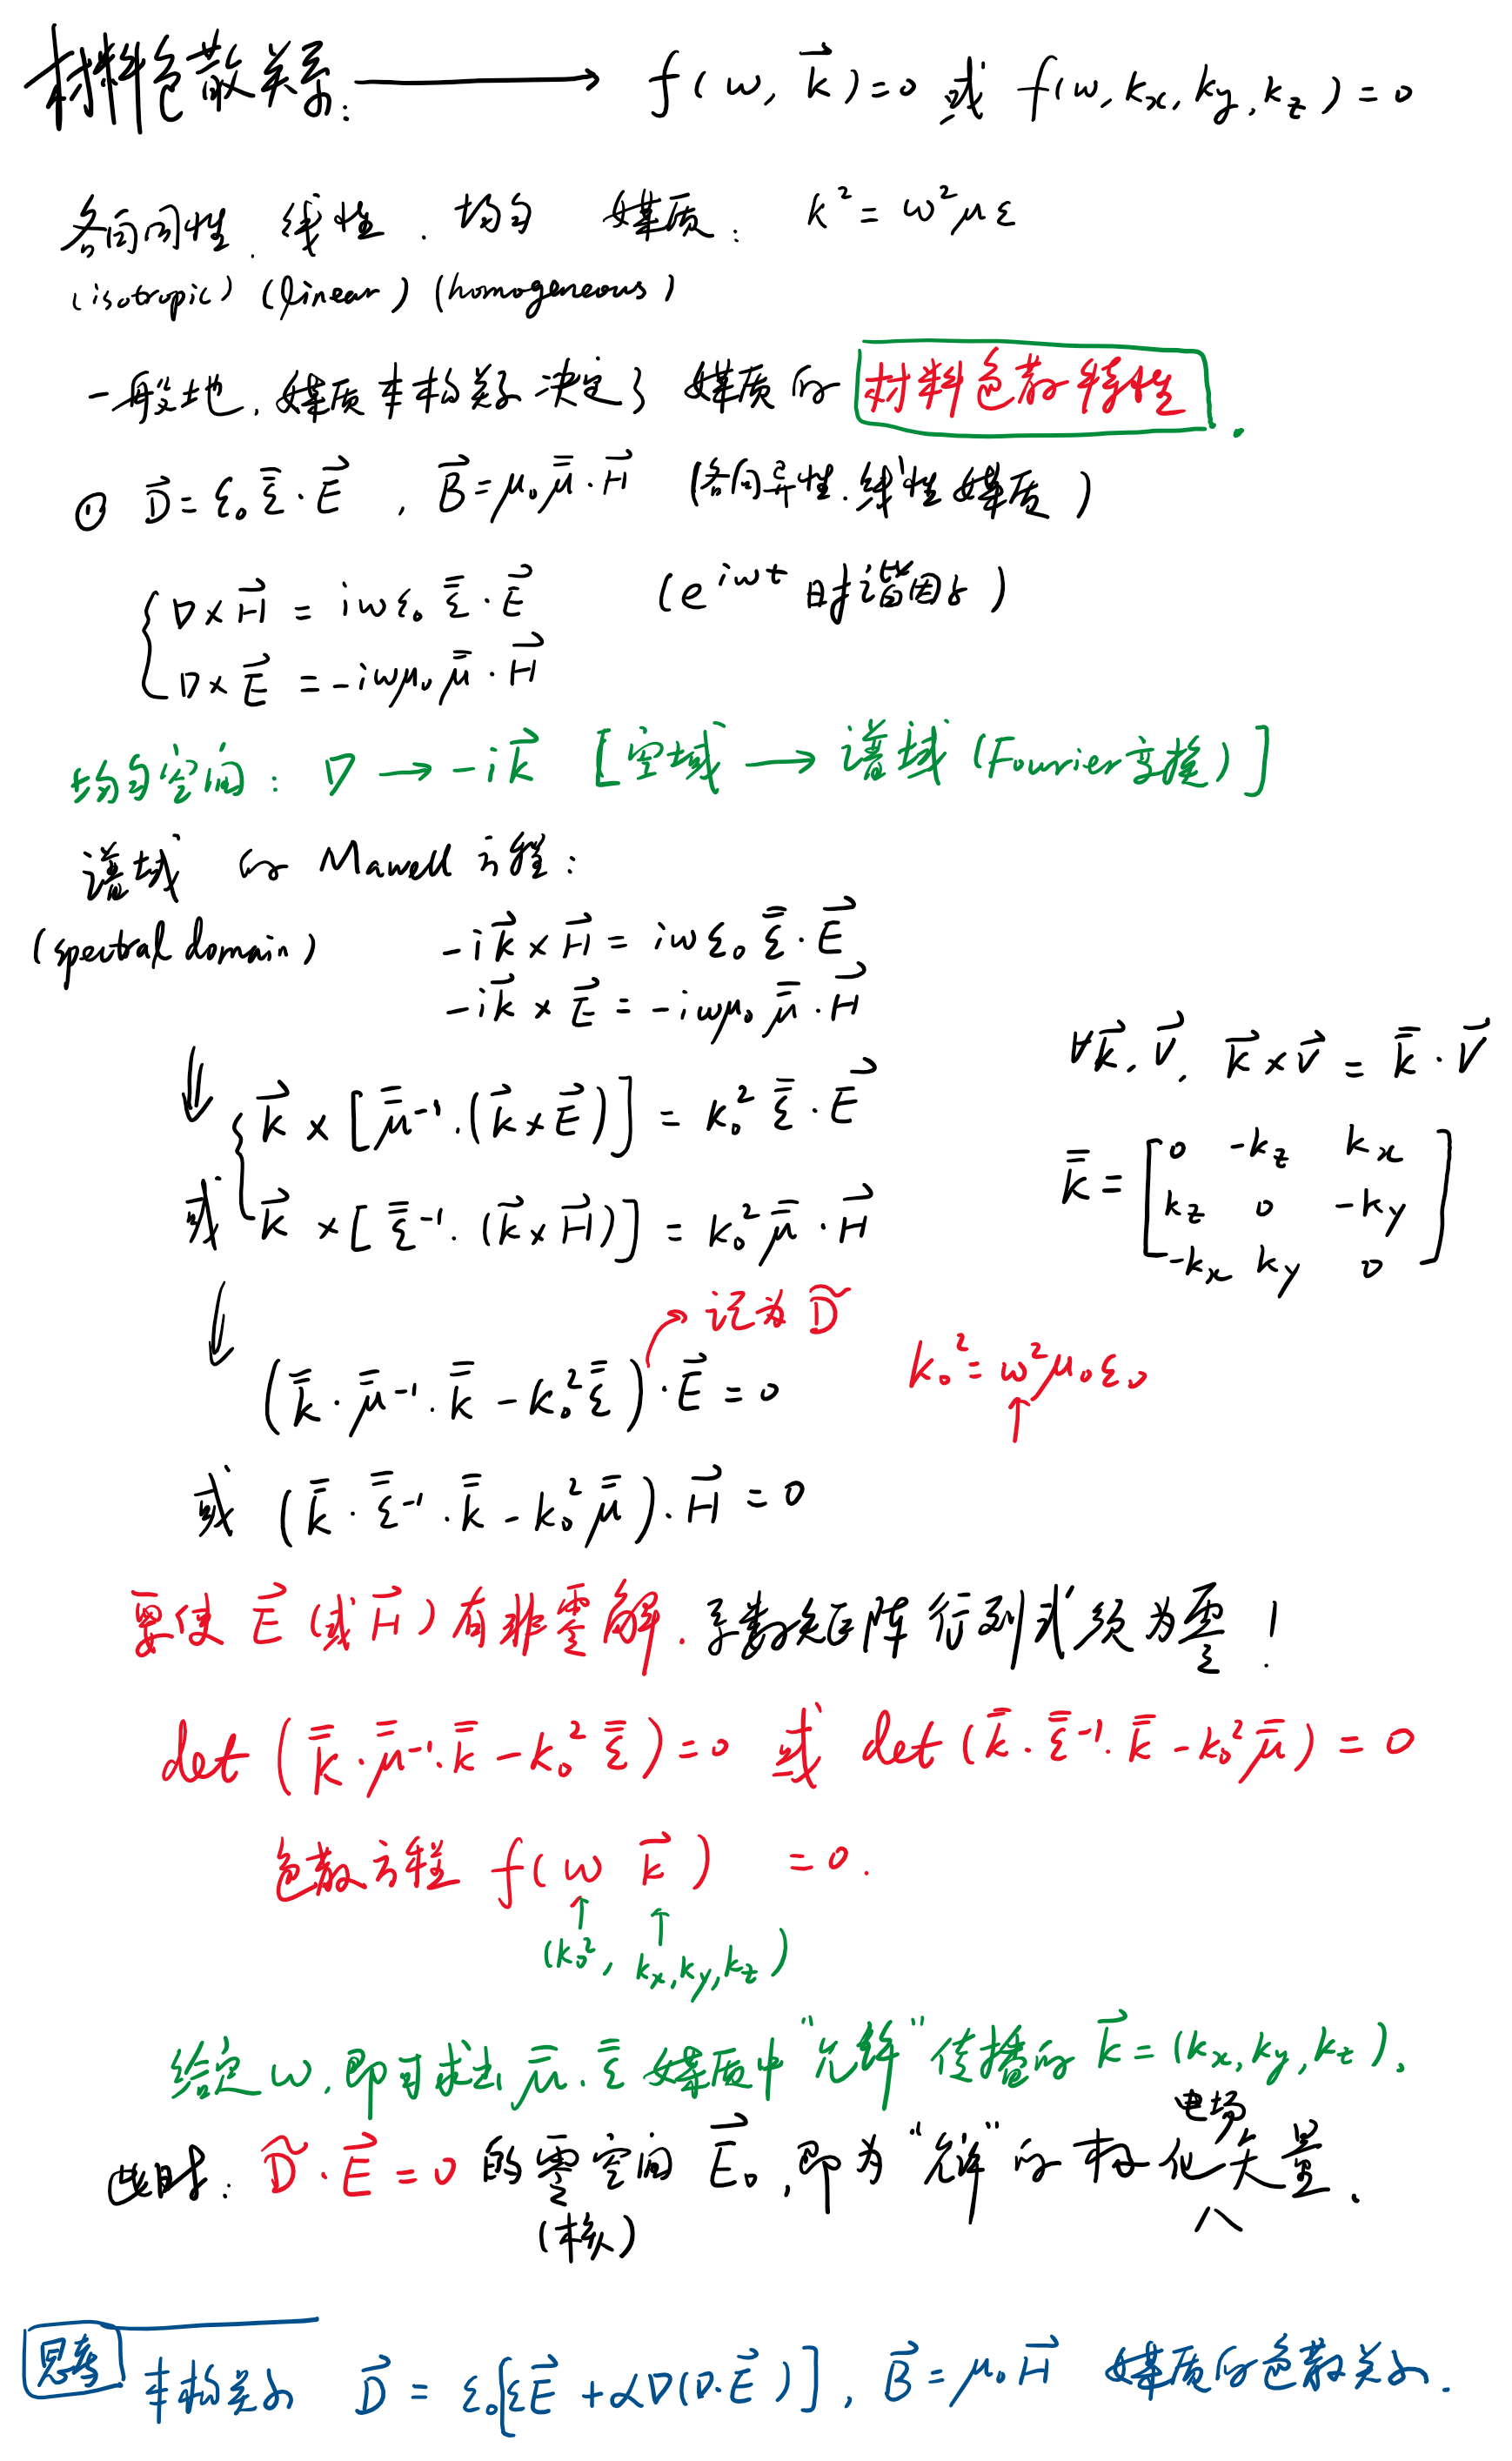 材料色散关系: ⟶ f(ω, k⃗)=0 或 f(ω, kx, ky, kz)=0
各向同性. 线性. 均匀 媒质: k² = ω²με
(isotropic) (linear) (homogeneous)
一般地, 媒质本构关系决定了 媒质的 材料色散特性.
① D⃗ = ε₀ ε̿ · E⃗ , B⃗ = μ₀ μ̿ · H⃗ (各向异性.线性媒质)
{ ∇×H⃗ = iωε₀ ε̿ · E⃗ (e^{iωt} 时谐因子)
∇×E⃗ = -iωμ₀ μ̿ · H⃗
均匀空间: ∇ → -ik⃗ [空域 → 谱域 (Fourier变换)]
谱域 的 Maxwell 方程:
(spectral domain) -ik⃗ × H⃗ = iωε₀ ε̿ · E⃗
-ik⃗ × E⃗ = -iωμ₀ μ̿ · H⃗
∀k⃗, v⃗, k⃗×v⃗ = k̿ · v⃗
⇓ { k⃗ × [μ̿⁻¹ · (k⃗×E⃗)] = k₀² ε̿ · E⃗
或 k⃗ × [ε̿⁻¹ · (k⃗×H⃗)] = k₀² μ̿ · H⃗
k̿ = [0 -kz kx
kz 0 -ky
-kx ky 0]
⇓ 记为 D̃
(k̿ · μ̿⁻¹ · k̿ - k₀² ε̿) · E⃗ = 0 k₀² = ω²μ₀ε₀
↑
或 (k̿ · ε̿⁻¹ · k̿ - k₀² μ̿) · H⃗ = 0
要使 E⃗ (或 H⃗) 有非零解. 系数矩阵行列式须为零!
det (k̿ · μ̿⁻¹ · k̿ - k₀² ε̿) = 0 或 det (k̿ · ε̿⁻¹ · k̿ - k₀² μ̿) = 0
色散方程 f(ω k⃗) = 0.
↑ ↑
(k₀², kx, ky, kz)
给定 ω, 即可求出 μ̿. ε̿ 媒质中 "允许" 传播的 k⃗ = (kx, ky, kz).
此时: D̃ · E⃗ = 0 的零空间 E⃗₀, 即为 "允许" 的 电场极化矢量.
(核)
思考 本构关系 D⃗ = ε₀[εE⃗ + α∇(∇·E⃗)], B⃗ = μ₀H⃗ 媒质的色散关系.